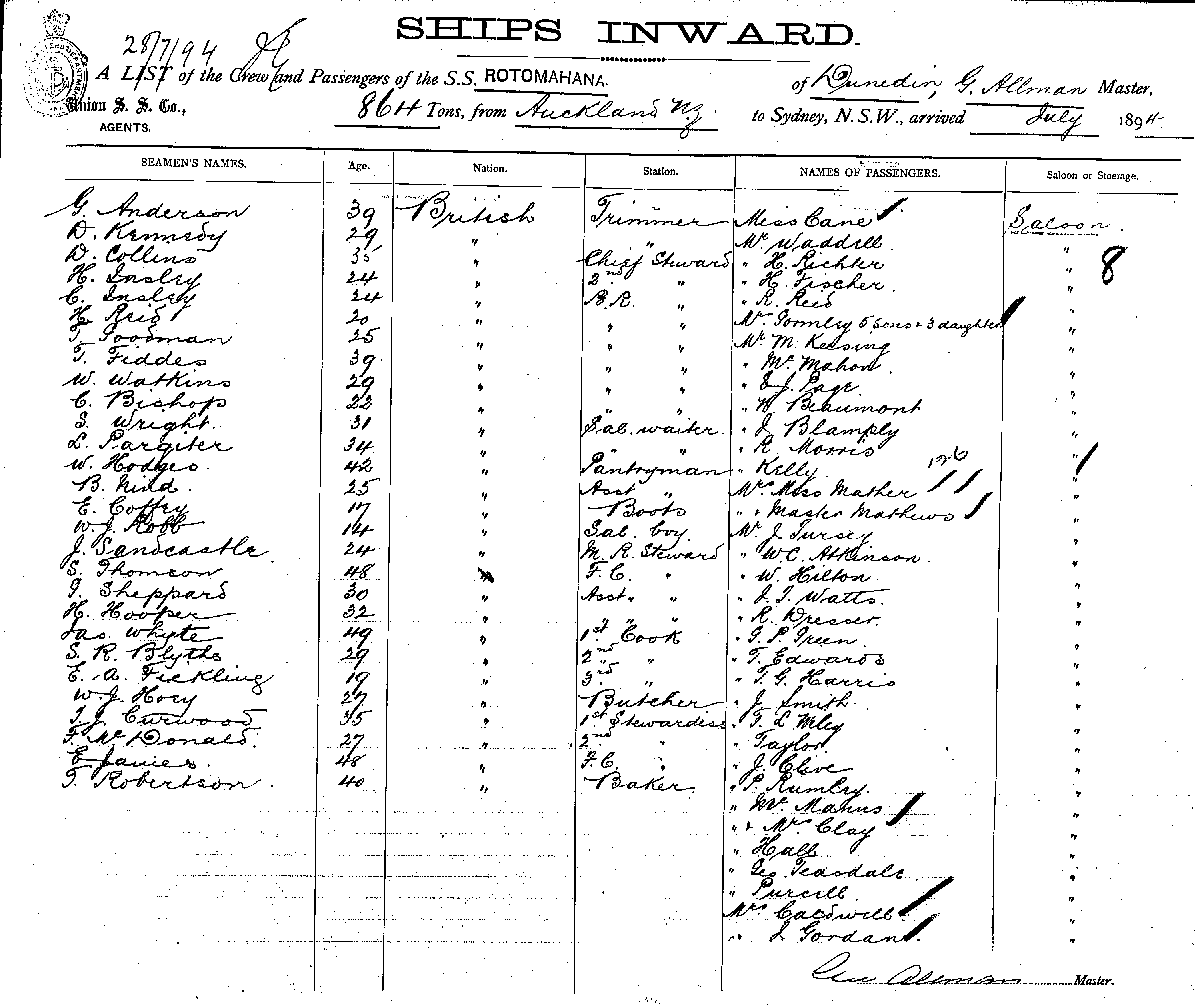 SHIPS INWARD.
28/7/94
A LIST of the Crew and Passengers of the S.S. ROTOMAHANA. of Dunedin, G. Allman Master,
Union S. S. Co., 864 Tons, from Auckland N.Z. to Sydney, N.S.W., arrived July 1894
AGENTS.
SEAMEN'S NAMES. Age. Nation. Station. NAMES OF PASSENGERS. Saloon or Steerage.
G. Anderson 39 British Trimmer Miss Cane Saloon
D. Kennedy 29 " " Mr. Waddell "
D. Collins 35 " Chief Steward " H. Richter " 8
H. Insley 24 " 2nd " " H. Fischer "
C. Insley 24 " B.R. " R. Reid "
H. Reid 20 " " " Mrs. Gormley 5 sons + 3 daughters "
T. Goodman 25 " " " Mr. M. Keesing "
T. Fiddes 39 " " " " Mc. Mahon "
W. Watkins 29 " " " " E. J. Page "
C. Bishop 22 " " " " W. Beaumont "
S. Wright 31 " Sal. waiter " J. Blamply "
L. Pargiter 34 " " " " R. Morris "
W. Hodges 42 " Pantryman " Kelly 126 "
B. Nind 25 " Asst " Mrs. Miss Mather "
E. Coffey 17 " Boots " " Master Mathews "
W. J. Robb 14 " Sal. boy Mr. J. Tursey "
J. Sandcastle 24 " M. R. Steward " W C. Atkinson "
S. Thomson 48 " F. C. " " W. Hilton "
G. Sheppard 30 " Asst " " " J. T. Watts "
H. Hooper 32 " " " " R. Dresser "
Jas. Whyte 49 " 1st Cook " G. P. Green "
S. R. Blyths 29 " 2nd " " T. Edwards "
E. A. Fickling 19 " 3rd " " T. G. Harris "
W. J. Hoey 27 " Butcher " J. Smith "
T. J. Curwood 35 " 1st Stewardess " T. L. Wiley "
F. Mc Donald 27 " 2nd " " Taylor "
E. James 48 " F. C. " " J. Clive "
T. Robertson 40 " Baker " P. Rumley "
" Mc. Manus "
" + Mrs Clay "
" Hall "
" Geo. Teasdale "
" Purcell "
Mrs Caldwell "
" J. Gordan "
Geo Allman Master.